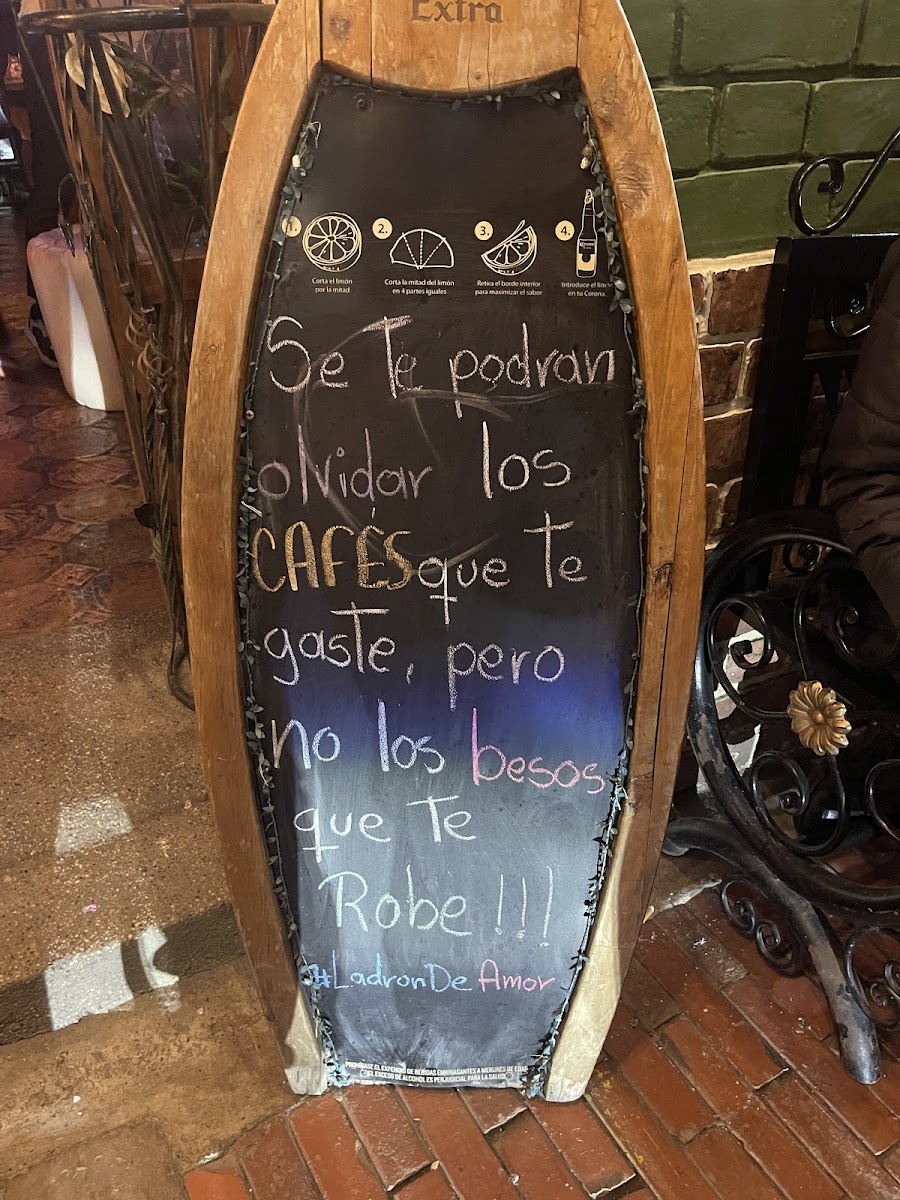 Extra
1. 2. 3. 4.
Corta el limón
por la mitad
Corta la mitad del limón
en 4 partes iguales
Retira el borde interior
para maximizar el sabor
Introduce el
en tu Corona.
Se Te podran
olvidar los
CAFÉS que Te
gasTe, pero
no los besos
que Te
Robe !!!
#LadronDe Amor
PROHÍBASE EL EXPENDIO DE BEBIDAS EMBRIAGANTES A MENORES DE EDAD
EL EXCESO DE ALCOHOL ES PERJUDICIAL PARA LA SALUD